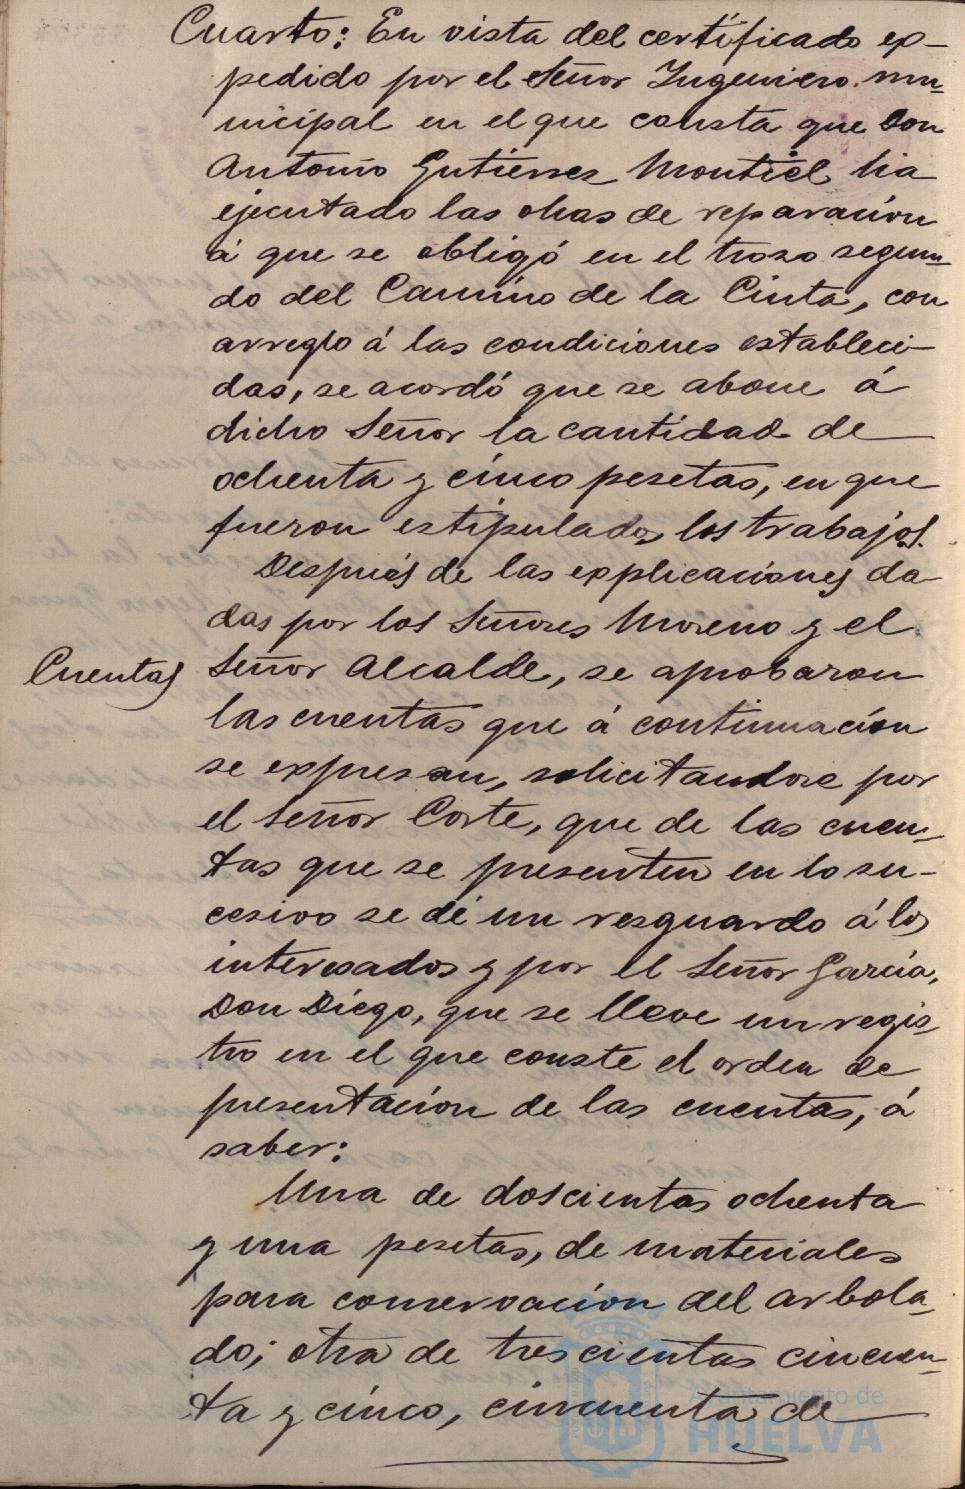 Cuarto: En vista del certificado ex-
pedido por el Señor Ingeniero mu-
nicipal en el que consta que Don
Antonio Gutiérrez Montiel ha
ejecutado las obras de reparación
á que se obligó en el trozo segun-
do del Camino de la Cinta, con
arreglo á las condiciones estableci-
das, se acordó que se abone á
dicho Señor la cantidad de
ochenta y cinco pesetas, en que
fueron estipulados los trabajos.
Después de las explicaciones da-
das por los Señores Moreno y el
Cuentas
Señor Alcalde, se aprobaron
las cuentas que á continuación
se expresan, solicitandose por
el Señor Corte, que de las cuen-
tas que se presenten en lo su-
cesivo se dé un resguardo á los
interesados y por el Señor García,
Don Diego, que se lleve un regis-
tro en el que conste el orden de
presentación de las cuentas, á
saber:
Una de doscientas ochenta
y una pesetas, de materiales
para conservación del arbola-
do; otra de trescientas cincuen-
ta y cinco, cincuenta de
Ayuntamiento de
HUELVA